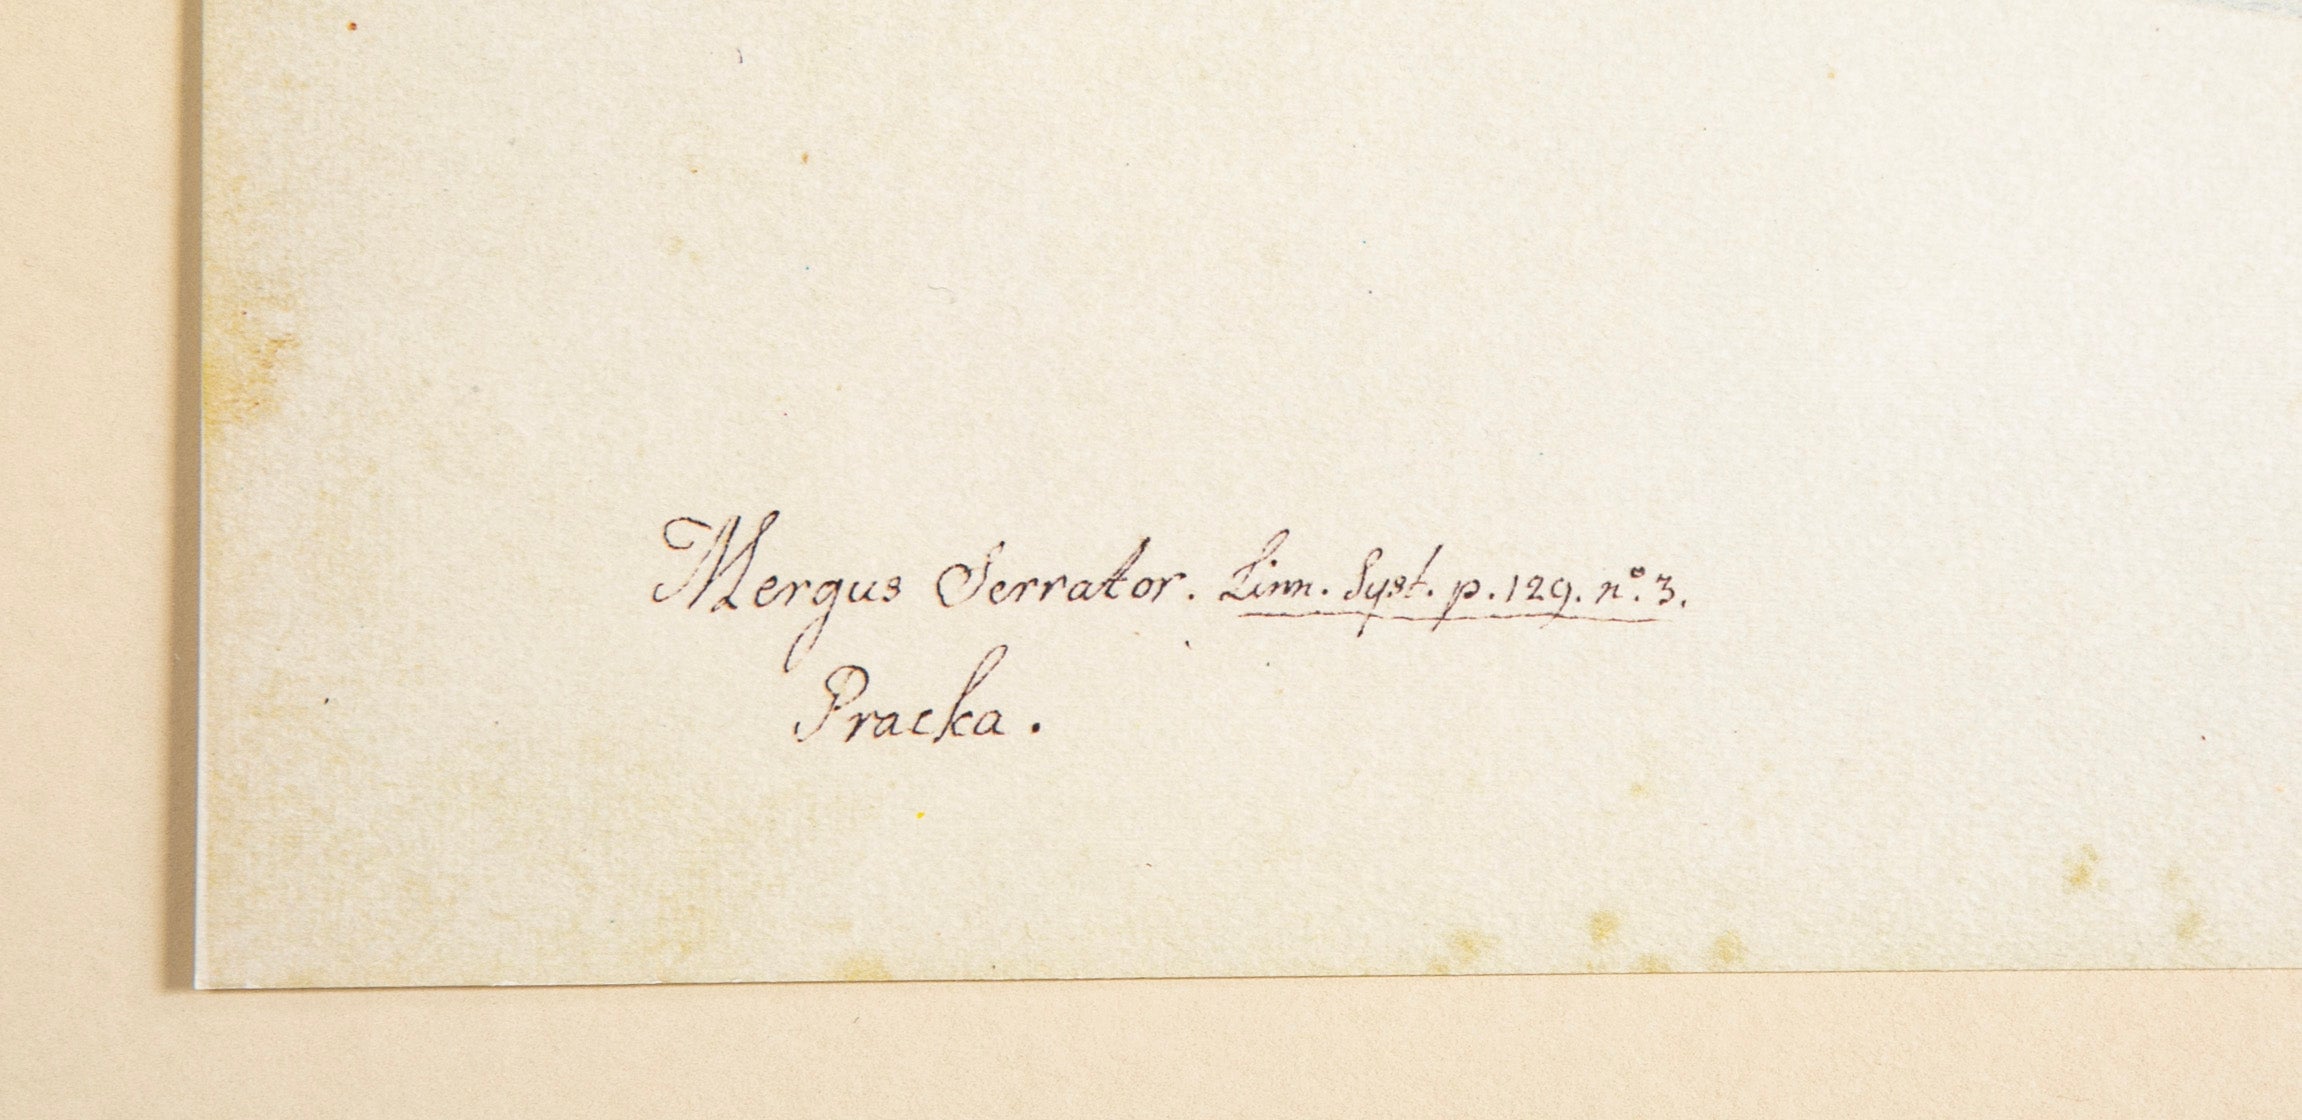 Mergus Serrator. Linn. Syst. p. 129. nº. 3.
Pracka.